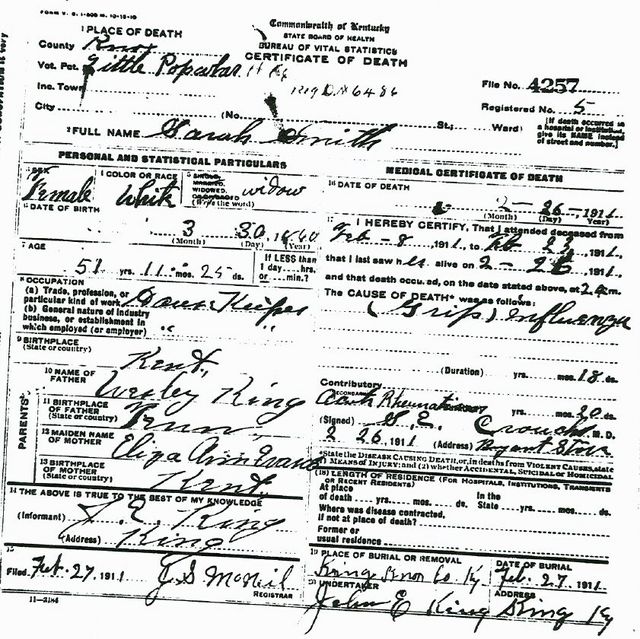 FORM V. S. 1-50M 10-15-10
Commonwealth of Kentucky
STATE BOARD OF HEALTH
BUREAU OF VITAL STATISTICS
CERTIFICATE OF DEATH
1 PLACE OF DEATH
County Knox
Vot. Pct. Little Popular
Inc. Town
City
(No.
St.;
Ward)
File No. 4257
Registered No. 5
[If death occurred in a hospital or institution, give its NAME instead of street and number.]
2 FULL NAME Sarah Smith
PERSONAL AND STATISTICAL PARTICULARS
SEX Female
4 COLOR OR RACE White
5 SINGLE, MARRIED, WIDOWED, OR DIVORCED (Write the word) widow
6 DATE OF BIRTH
3 30, 1860
(Month) (Day) (Year)
7 AGE
51 yrs. 11 mos. 25 ds.
If LESS than 1 day....hrs. or.....min.?
8 OCCUPATION
(a) Trade, profession, or particular kind of work House Keeper
(b) General nature of industry business, or establishment in which employed (or employer) "
9 BIRTHPLACE
(State or country) Kent,
PARENTS
10 NAME OF FATHER Wesley King
11 BIRTHPLACE OF FATHER (State or country) Tenn
12 MAIDEN NAME OF MOTHER Eliza Ann Evans
13 BIRTHPLACE OF MOTHER (State or country) Kent,
14 THE ABOVE IS TRUE TO THE BEST OF MY KNOWLEDGE
(Informant) J. E. King
(Address) King
15
Filed Feb. 27, 1911 J S McNeil
REGISTRAR
11-3184
MEDICAL CERTIFICATE OF DEATH
16 DATE OF DEATH
2-26-1911
(Month) (Day) (Year)
17 I HEREBY CERTIFY, That I attended deceased from
Feb - 8, 1911, to Feb 22, 1911,
that I last saw h alive on 2-26, 1911,
and that death occurred, on the date stated above, at 2 m.
The CAUSE OF DEATH* was as follows:
(Grip) Influenza
(Duration) yrs. mos. 18 ds.
Contributory
(SECONDARY) Rheumatism yrs. mos. 20 ds.
(Signed) S. E. Crouch M. D.
2 26, 1911 (Address) Bryant Store
*State the DISEASE CAUSING DEATH, or, in deaths from VIOLENT CAUSES, state
(1) MEANS OF INJURY; and (2) whether ACCIDENTAL, SUICIDAL or HOMICIDAL
(18) LENGTH OF RESIDENCE (FOR HOSPITALS, INSTITUTIONS, TRANSIENTS OR RECENT RESIDENTS)
At place of death yrs. mos. ds. In the State yrs. mos. ds.
Where was disease contracted, if not at place of death?
Former or usual residence
19 PLACE OF BURIAL OR REMOVAL
King Knox Co Ky
DATE OF BURIAL
Feb. 27, 1911
20 UNDERTAKER
John E King
ADDRESS
King Ky